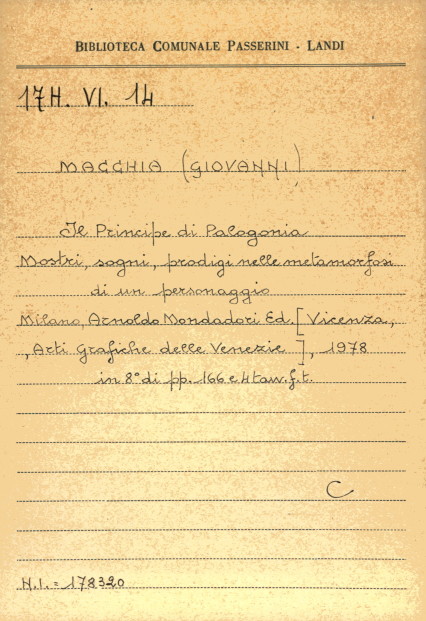 BIBLIOTECA COMUNALE PASSERINI - LANDI
17H. VI. 14
MACCHIA (GIOVANNI)
Il Principe di Palagonia
Mostri, sogni, prodigi nelle metamorfosi
di un personaggio
Milano, Arnoldo Mondadori Ed. [Vicenza,
, Arti Grafiche delle Venezie], 1978
in 8° di pp. 166 e 4 tav. f. t.
C
N.I. = 178320